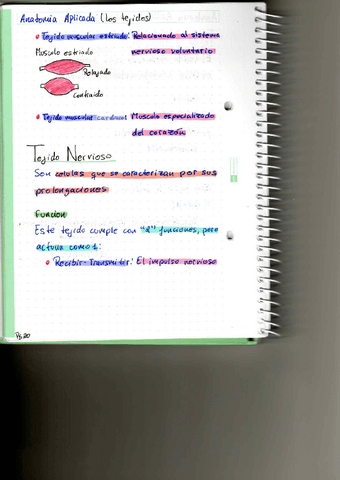 Anatomia Aplicada (Los tejidos)
Tejido muscular estriado: Relacionado al sistema
Musculo estriado nervioso voluntario
Relajado
Contraido
Tejido muscular cardiaco: Musculo especializado
del corazón
Tejido Nervioso
Son celulas que se caracterizan por sus
prolongaciones
Funcion
Este tejido cumple con "2" funciones, pero
actua como 1:
Recibir-Transmitir: El impulso nervioso
Pg 20